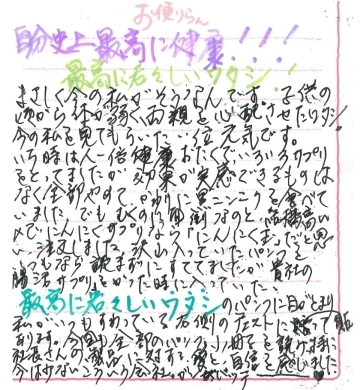 お便りらん
自分史上最高に健康!!!
最高に若々しいワタシ!
まさしく今の私がそうなんです。子供の
頃から体が弱く両親を心配させたワタシ
今の私を見てもらいたい位元気です。
いち時は人一倍健康おたくでいろいろサプリ
をとってましたが効果が実感できるものは
なく全部やめてゆいにニンニクを食べて
いました でもむくのは面倒なのと
にんにくサプリなら「にんにく玉」だと思
い注文しました 沢山入っていたパンフを
いつもなら読まずにすててましたが 貴社の
腸まサプリ
最高に若々しいワタシのパンフに目がとまり
私がいつもすわっている右側のタンスに貼って
ます。今回も全部のパンフ、小冊子を読み
社長さんの製品に対する愛と自信を感じました
今はけないこういう会社